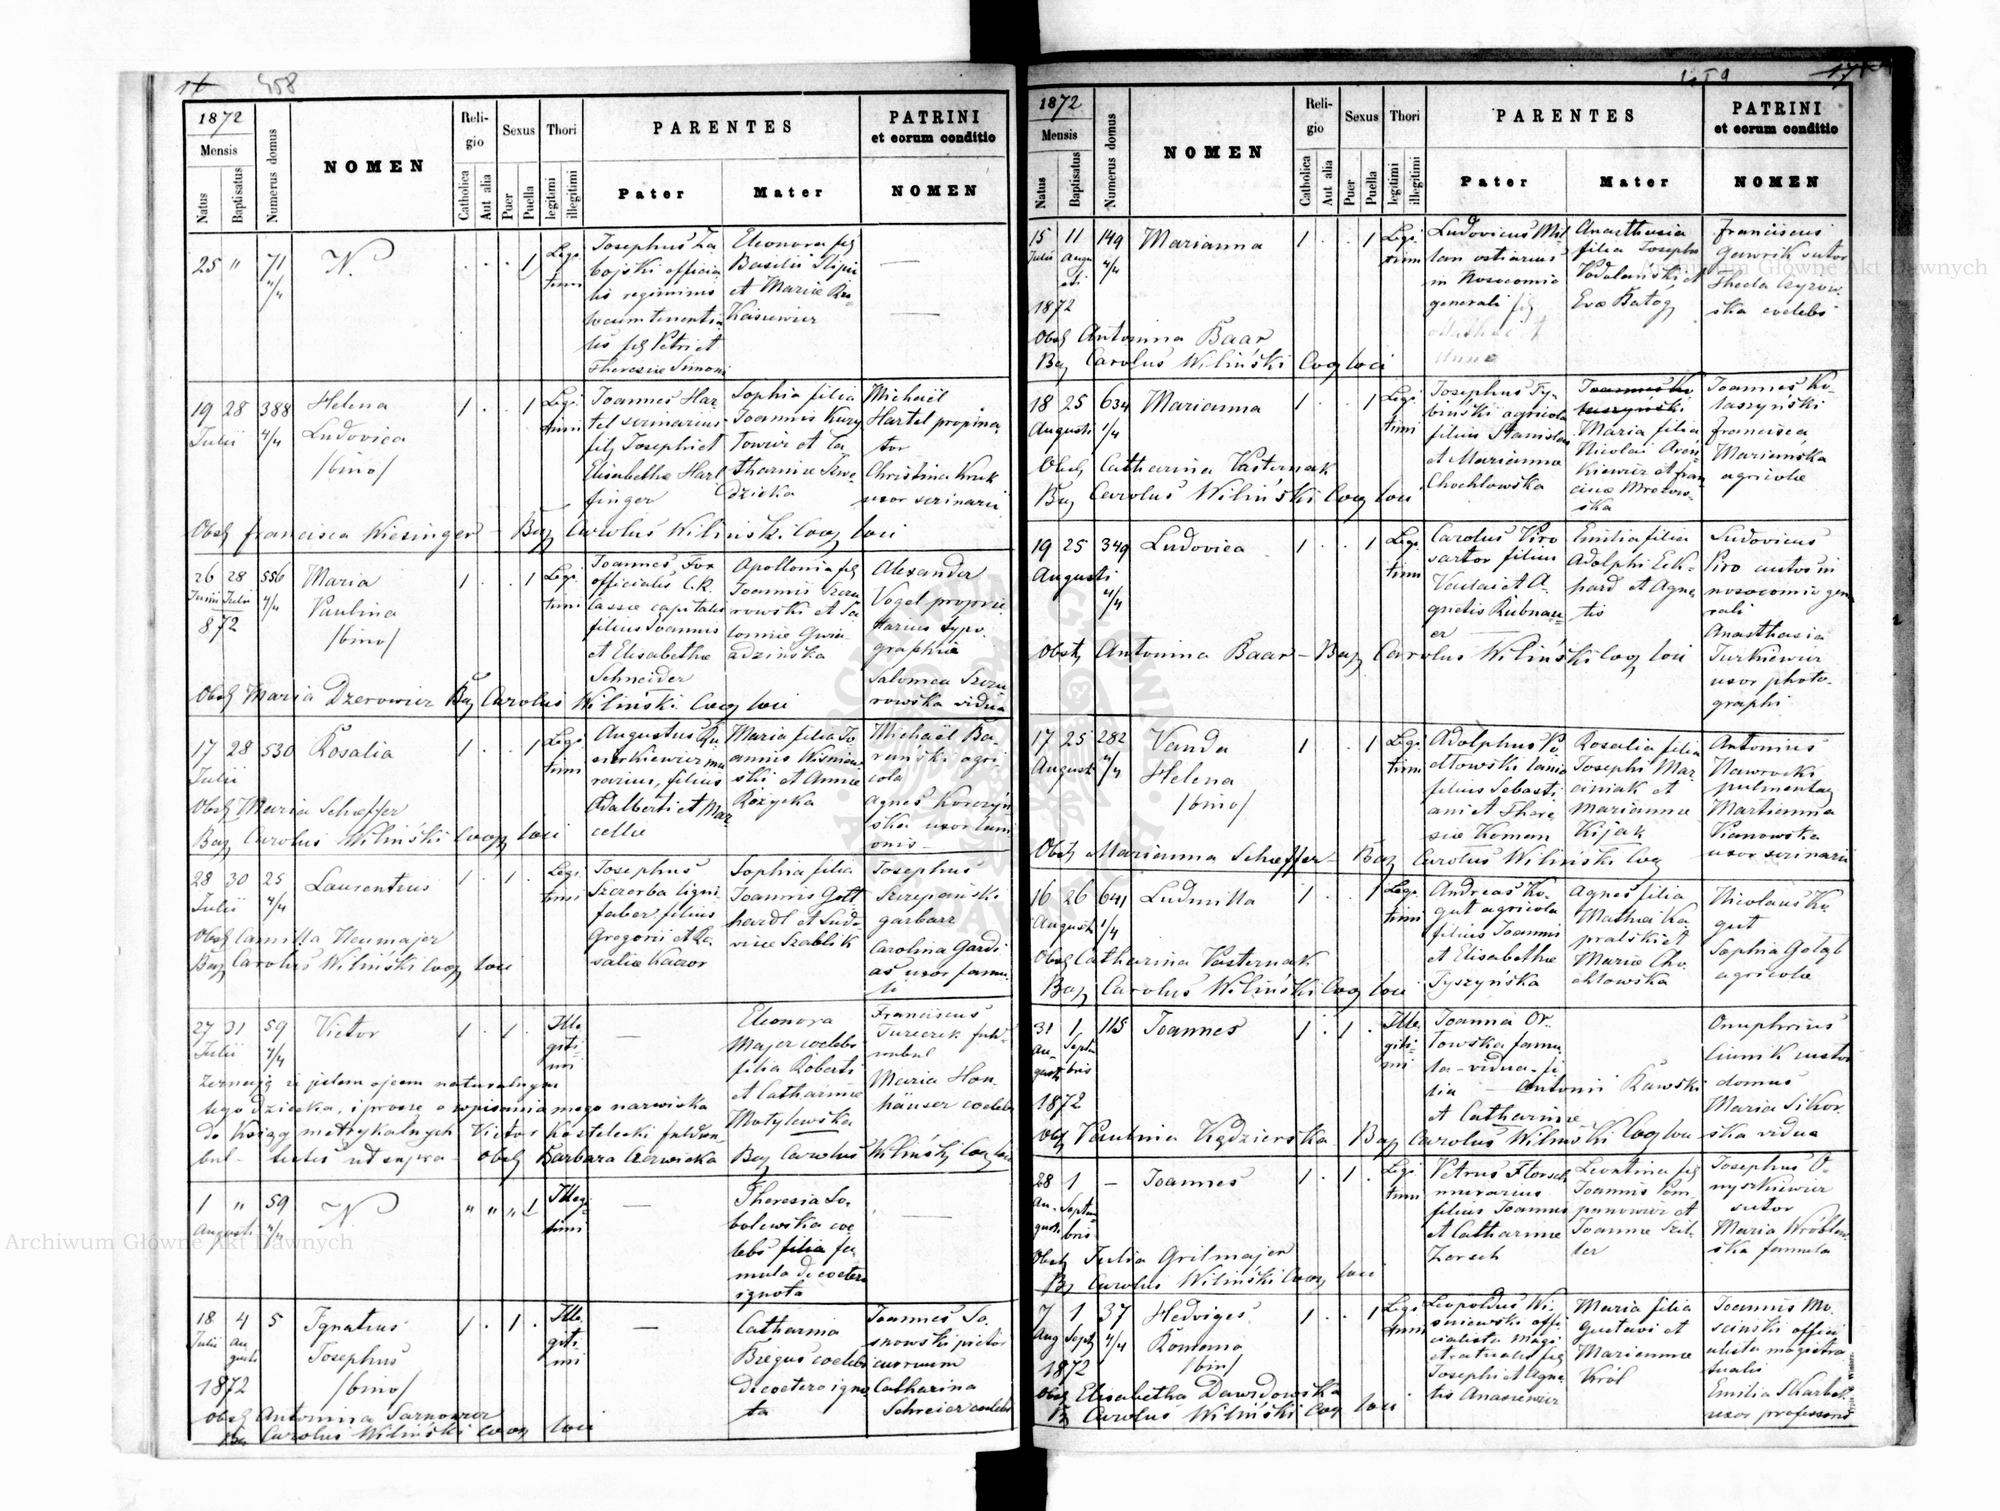 458
1872
Mensis
Natus
Baptisatus
Numerus domus
NOMEN
Reli-
gio
Catholica
Aut alia
Sexus
Puer
Puella
Thori
legitimi
illegitimi
PARENTES
Pater
Mater
PATRINI
et eorum conditio
NOMEN
25 " 71
4/4
N.
1
Legi
timi
Josephus Za
bojski officia
lis regiminis
locumtenentia
lis fil Petri et
Theresiae Simoni
Eleonora fil
Basilii
et Mariae
19 28 388
Julii 4/4
Helena
Ludovica
/bino/
1 . . 1
Legi
timi
Joannes Har
tel serinarius
fil Josephi et
Elisabethae Harl
finger
Sophia filia
Joannis Kury
łowicz et Ca
tharinae Szwe
dzicka
Michaël
Hartel propina
tor
Christina Kruk
uxor serinarii
Obst Francisca Wiesinger – Bap Carolus Wiliński Coop loci
26 28 556
Junii Julii 4/4
872
Maria
Paulina
/bino/
1 . . 1
Legi
timi
Joannes Fox
officialis C.R.
cassae capitalis
filius Joannis
et Elisabethae
Schneider
Apollonia fil
Joannis Szczu
rowski et Sa
lomeae Gwia
zdzińska
Alexander
Vogel proprie
tarius typo
graphiae
Salomea Szczu
rowska vidua
Obst Maria Dzerowicz Bap Carolus Wiliński Coop loci
17 28 530
Julii
Rosalia
1 . . 1
Legi
timi
Augustus Ku
mu
rarius, filius
Adalberti et Mar
cellae
Maria filia Jo
annis Wiśniew
ski et Annae
Różycka
Michaël Ba
rański agri
cola
Agnes Korczyń
ska uxor lani
onis
Obst Maria Scheffer
Bap Carolus Wiliński Coop loci
28 30 25
Julii 4/4
Laurentius
1 . 1 .
Legi
timi
Josephus
Szczerba ligni
faber, filius
Gregorii et Ro
saliae Kaczor
Sophia filia
Joannis Gott
hardt et Ludo
vicae Szablik
Josephus
Szczepański
garbarz
Carolina Gardi
as uxor famu
li
Obst Camilla Neumajer
Bap Carolus Wiliński Coop loci
27 31 59
Julii 4/4
Victor
1 . 1 .
Ille
giti
mi
—
Eleonora
Majer coelebs
filia Roberti
et Catharinae
Motylewska
Franciscus
Tureczek
Maria Hon
häuser coelebs
Zeznaję iż jestem ojcem naturalnym
tego dziecka, i proszę o wpisania mego nazwiska
do Ksiąg metrykalnych Victor Kostelecki
testes ut supra – Obst Barbara Czerwicka Bap Carolus Wiliński Coop loci
1 " 59
Augusti 4/4
N
" " " 1
Illeg
timi
—
Theresia So
bolewska coe
lebs filia fa
mula de cetero
ignota
—
18 4 5
Julii Au
gusti
1872
Ignatius
Josephus
/bino/
1 . 1 .
Ille
giti
mi
—
Catharina
Biegus coelebs
de coetero igno
ta
Joannes So
snowski pictor
curruum
Catharina
Schreier coelebs
Obst Antonina Sarnowicz
Bap Carolus Wiliński Coop loci
459
17
1872
Mensis
Natus
Baptisatus
Numerus domus
NOMEN
Reli-
gio
Catholica
Aut alia
Sexus
Puer
Puella
Thori
legitimi
illegitimi
PARENTES
Pater
Mater
PATRINI
et eorum conditio
NOMEN
15 11 149
Julii Augu
sti 4/4
1872
Marianna
1 . . 1
Legi
timi
Ludovicus Mil
lan ostiarius
in Nosocomio
generali fil
Mathaei et
Anna
Anasthasia
filia Josephi
Podolański et
Evae Batog
Franciscus
Gawrik sutor
Thecla Czyżow
ska coelebs
Obst Antonina Baar
Bap Carolus Wiliński Coop loci
18 25 634
Augusti 1/4
Marianna
1 . . 1
Legi
timi
Josephus Ty
biński agricola
filius Stanislai
et Mariannae
Chochłowska
Joannes Ko
łaszyński
Maria filia
Nicolai
kiewicz et Fran
ciscae Mrozow
ska
Joannes Ko
łaszyński
Francisca
Mariańska
agricolae
Obst Catharina Pasternak
Bap Carolus Wiliński Coop loci
19 25 349
Augusti
4/4
Ludovica
1 . . 1
Legi
timi
Carolus Piro
sartor filius
et A
gnetis Rubnau
er
Emilia filia
Adolphi Eck
hard et Agne
tis
Ludovicus
Piro custos in
nosocomio gene
rali
Anasthasia
Turkiewicz
uxor photo
graphi
Obst Antonina Baar – Bap Carolus Wiliński Coop loci
17 25 282
Augusti 4/4
Vanda
Helena
/bino/
1 . . 1
Legi
timi
Adolphus Po
złowski lanio
filius Sebasti
ani et There
siae Homan
Rosalia filia
Josephi Mar
ciniak et
Mariannae
Kijak
Antonius
Nawrocki
pulmentag
Martianna
Pianowska
uxor serinarii
Obst Marianna Scheffer – Bap Carolus Wiliński Coop
16 26 641
Augusti 1/4
Ludmilla
1 . . 1
Legi
timi
Andreas Ko
gut agricola
filius Joannis
et Elisabethae
Tyszyńska
Agnes filia
Mathia Ka
pralski et
Mariae Cho
chłowska
Nicolaus Ko
gut
Sophia Gołąb
agricolae
Obst Catharina Pasternak
Bap Carolus Wiliński Coop loci
31 1 115
Au- Septem
gusti bris
1872
Joannes
1 . 1 .
Ille
giti
mi
Joanna Or
łowska famu
la – vidua – fi
lia – Antonii Rawski
et Catharinae
Onuphrius
custos
domus
Maria Sikor
ska vidua
Obst Paulina Kądzierska Bap Carolus Wiliński Coop loci
28 1 –
Au- Septem
gusti bris
Joannes
1 . 1 .
Legi
timi
Petrus Florsch
murarius
filius Joannis
et Catharinae
Zorsch
Leontina fil
Joannis Pom
panowicz et
Joannae Szil
ler
Josephus O
nyszkiewicz
sutor
Maria Wróblew
ska famula
Obst Julia Grilmajer
Bap Carolus Wiliński Coop loci
7 1 37
Aug Sept 4/4
1872
Hedviges
Romana
/bin/
1 . . 1
Legi
timi
Leopoldus Wi
śniewski offi
cialista magi
stratualis fil
Josephi et Agne
tis Anasiewicz
Maria filia
Gustavi et
Mariannae
Król
Joannis Mo
ściński offici
alista magistra
tualis
Emilia Skarbek
uxor professoris
Obst Elisabetha Dawidowska
B Carolus Wiliński Coop loci
Archiwum Główne Akt Dawnych
Archiwum Główne Akt Dawnych